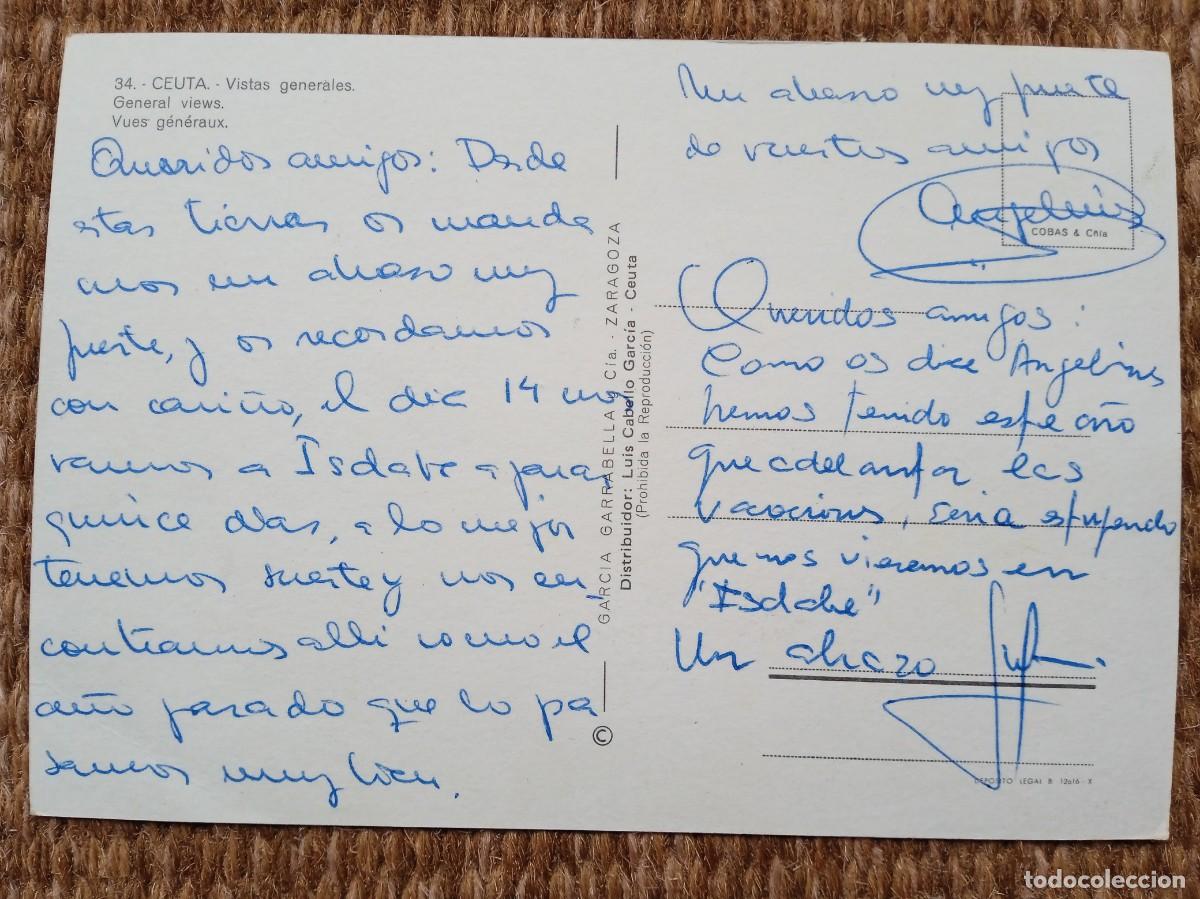 34. - CEUTA. - Vistas generales.
General views.
Vues généraux.
Queridos amigos: Desde
estas tierras os manda
mos un abraso muy
fuerte, y os recordamos
con cariño, el dia 14 nos
vamos a Isdabe a pasar
quince dias, a lo mejor
tenemos suerte y nos en
contramos alli como el
año pasado que lo pa
samos muy bien.
GARCIA GARRABELLA y Cía. - ZARAGOZA
Distribuidor: Luis Cabello García - Ceuta
(Prohibida la Reproducción)
©
Un abraso muy fuerte
de vuestros amigos
Angelines
COBAS & Cñia
Queridos amigos:
Como os dice Angelines
hemos tenido este año
que adelantar las
vacaciones, seria estupendo
que nos vieramos en
"Isdabe"
Un abrazo
DEPOSITO LEGAL B. 12616 - X
todocoleccion